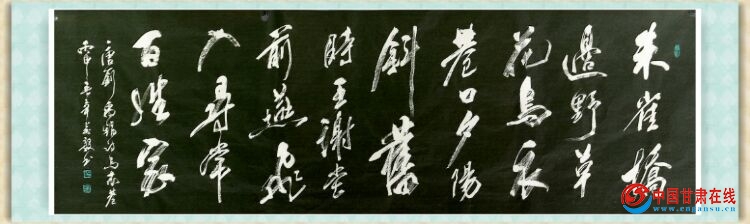 朱雀橋
邊野草
花烏衣
巷口夕陽
斜舊
時王謝堂
前燕飛
入尋常
百姓家
唐劉禹錫烏衣巷
丙申書
中国甘肃在线
www.cngansu.cn